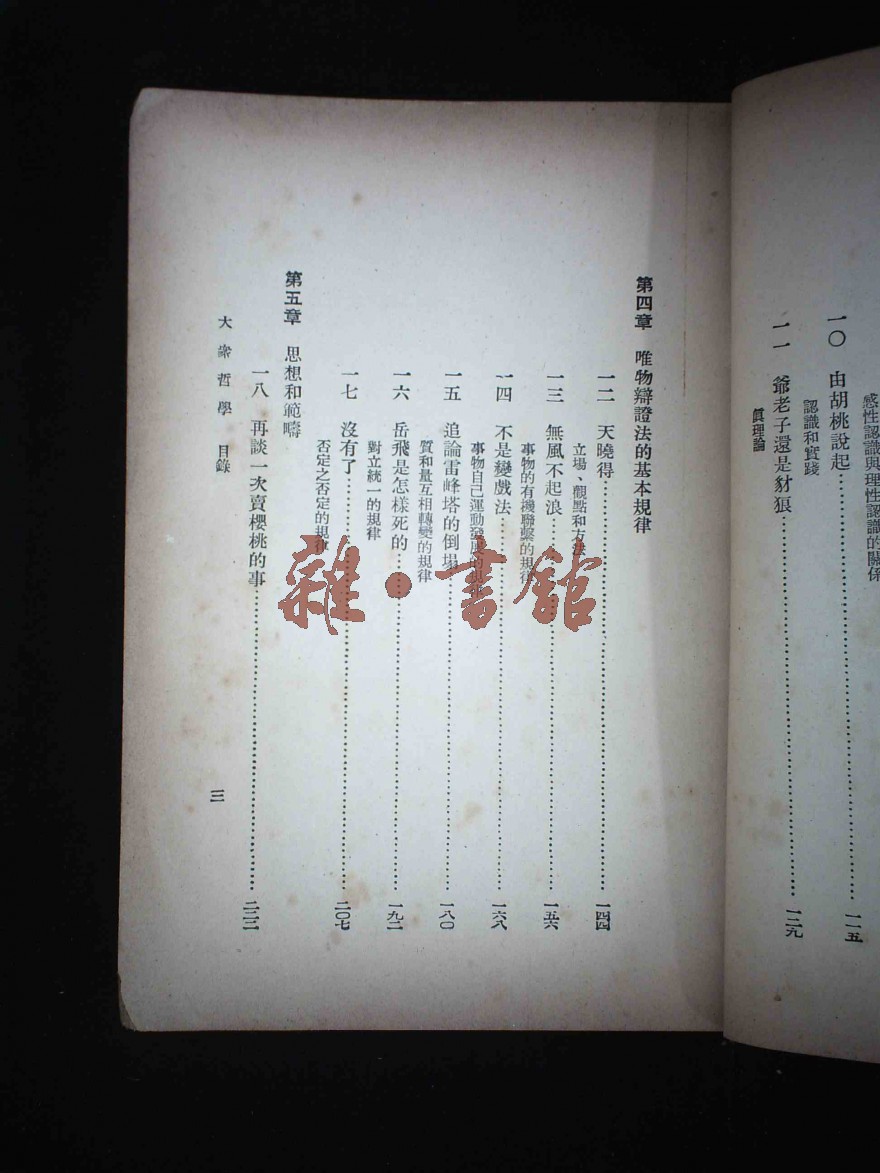 感性認識與理性認識的關係
一〇　由胡桃說起……一一五
認識和實踐
一一　爺老子還是豺狼……一二九
眞理論
第四章　唯物辯證法的基本規律
一二　天曉得……一四四
立場、觀點和方法
一三　無風不起浪……一五六
事物的有機聯繫的規律
一四　不是變戲法……一六八
事物自己運動發展的規律
一五　追論雷峰塔的倒塌……一八〇
質和量互相轉變的規律
一六　岳飛是怎樣死的……一九二
對立統一的規律
一七　沒有了……二〇七
否定之否定的規律
第五章　思想和範疇
一八　再談一次賣櫻桃的事……二二二
大衆哲學　目錄
三
雜·書館